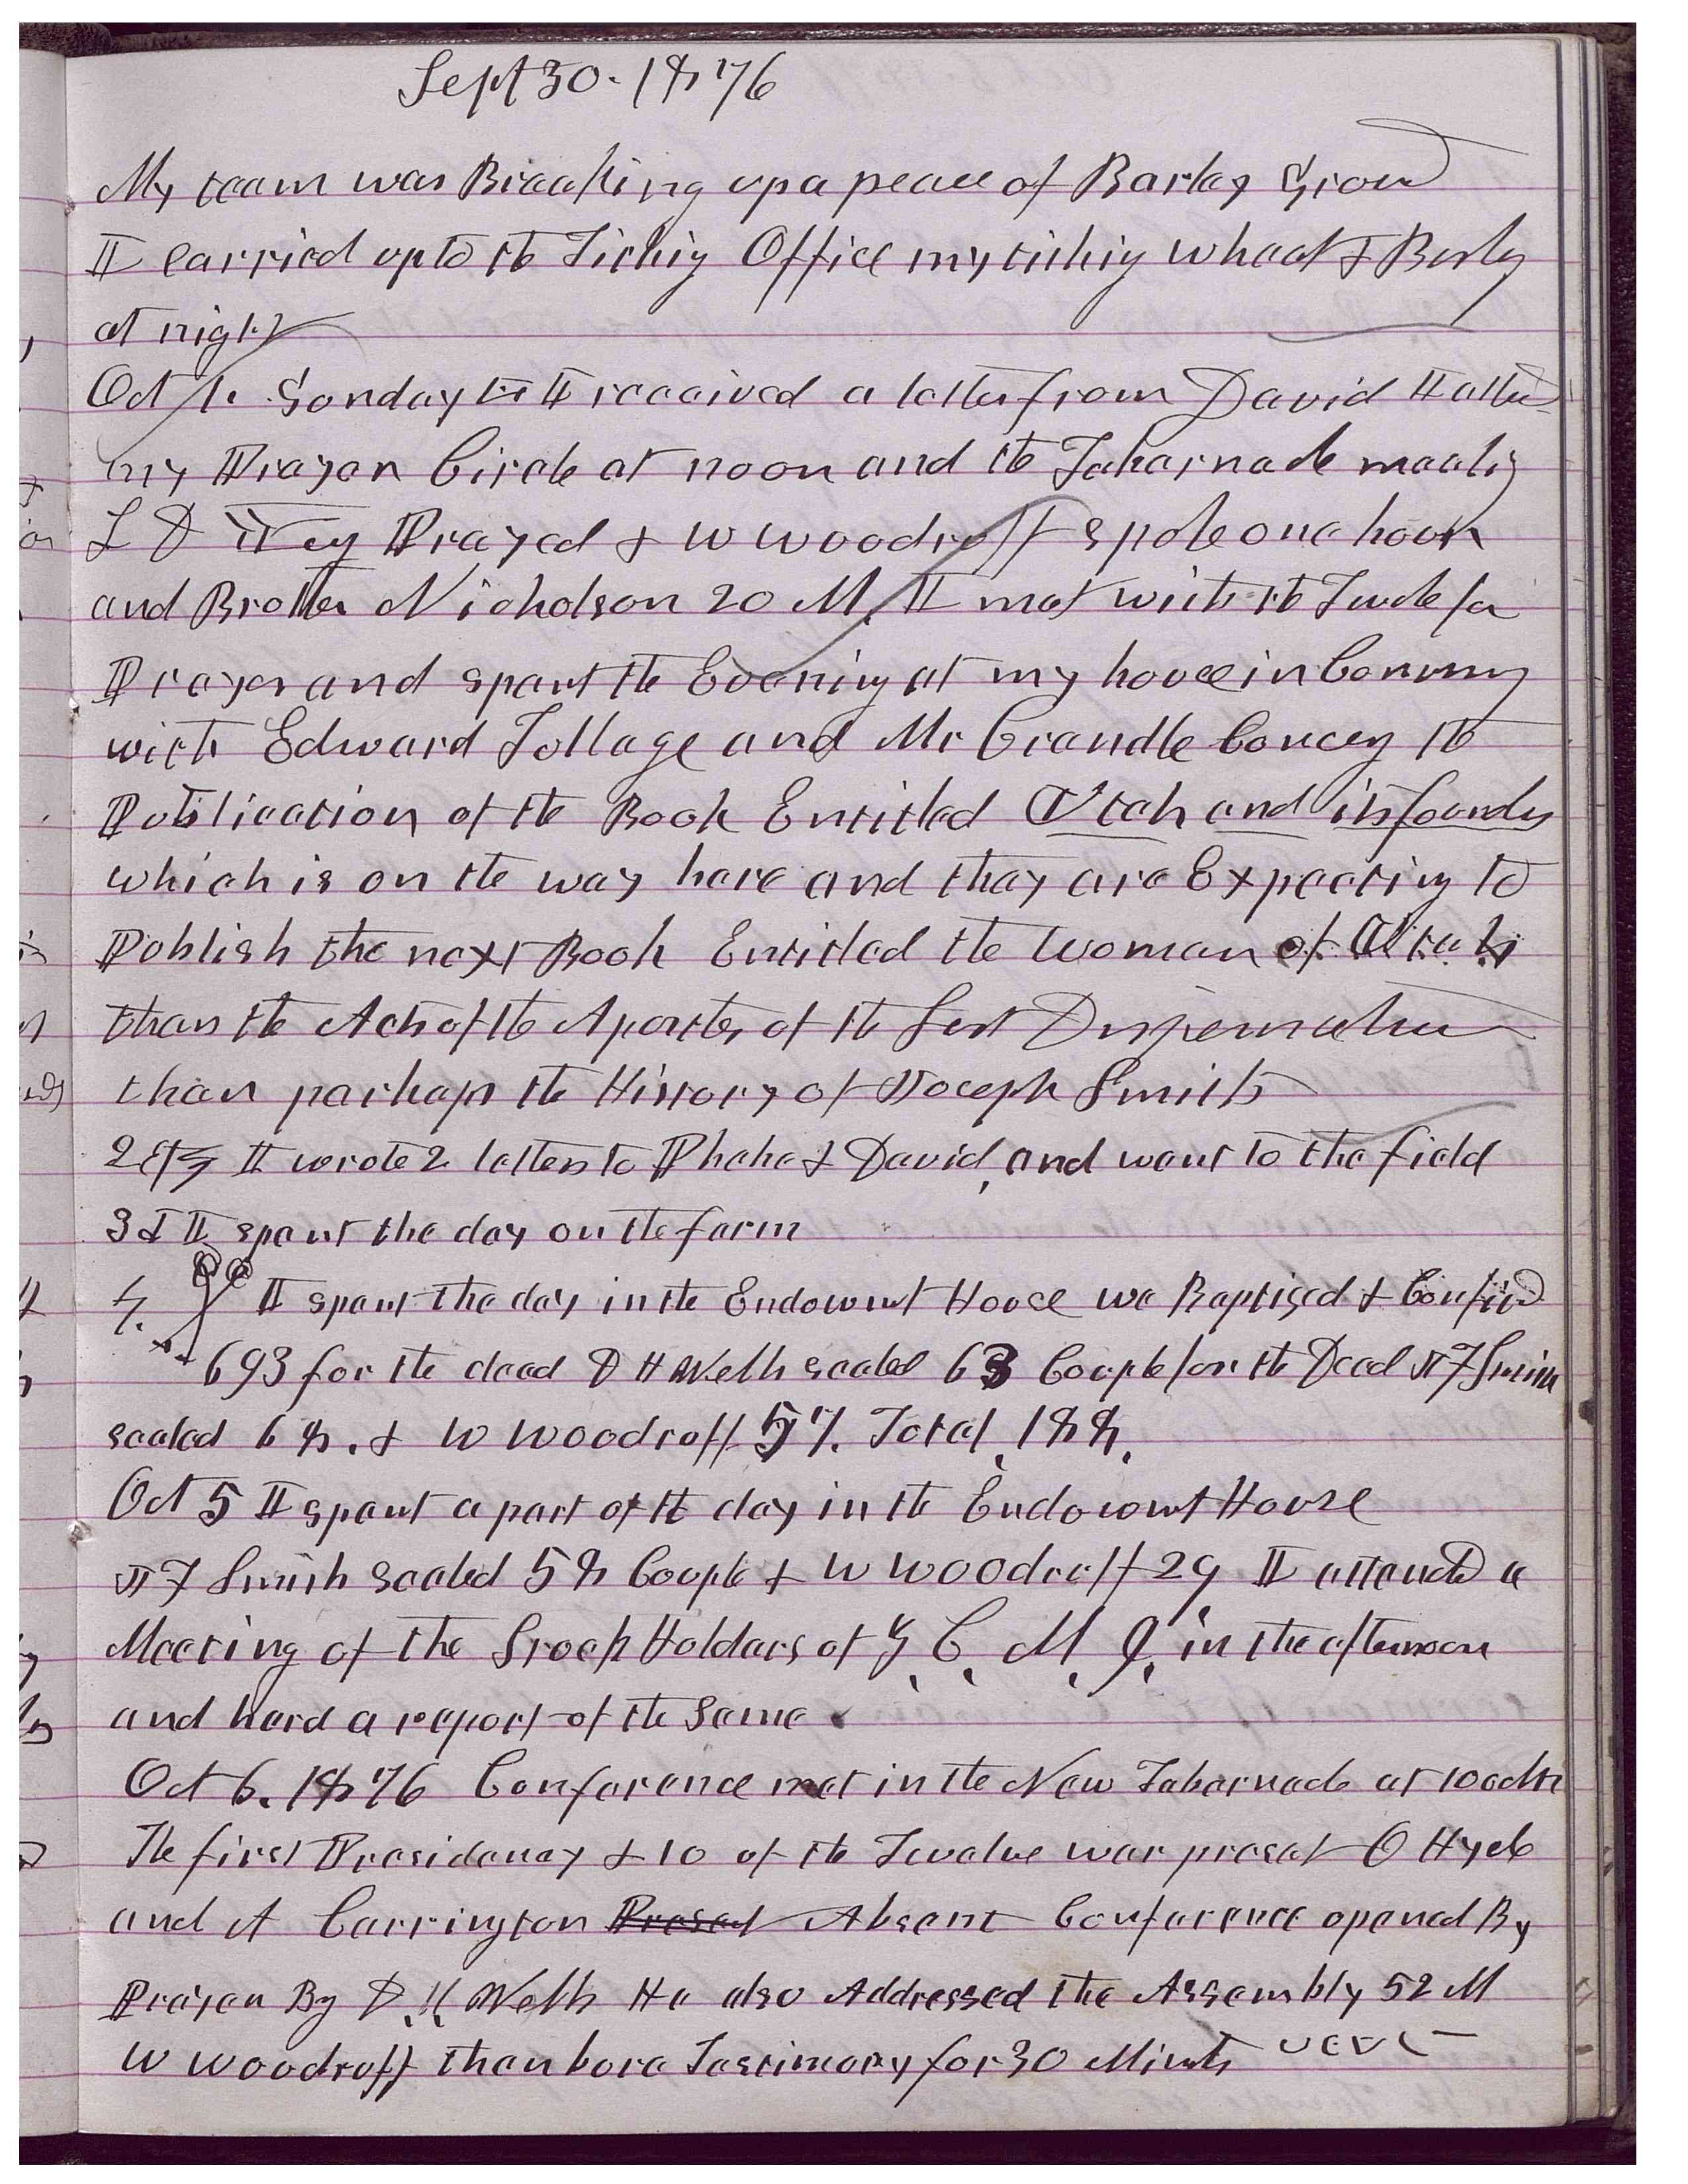 Sept 30. 1876
My team was Breaking up a peace of Barley Ground
I carried up to the Tithing Office my tithing wheat & Barly
at night
Oct 1. Sunday I received a letter from David I attend
my Prayer Circle at noon and the Tabernacle meeting
Prayed & W Woodruff spoke one hour
and Brother Nicholson 20 M. I met with the Twelve for
Prayer and spent the Evening at my house in Company
with Edward Tullage and Mr Crandle Concer the
Publication of the Book Entitled Utah and its founders
which is on the way here and they are Expecting to
Publish the next Book Entitled the Women of Utah
then the Acts of the Apostles of the Last Dispensation
then perhaps the History of Joseph Smith
2d I wrote 2 letters to Phebe & David, and went to the field
3d I spent the day on the farm
4. I spent the day in the Endowmt House we Baptised & Confird
693 for the dead D H Wells sealed 63 Couple for the Dead J F Smith
sealed 68. & W Woodruff 57. Total, 188,
Oct 5 I spent a part of the day in the Endowmt House
J F Smith sealed 58 Couple & W Woodruff 29, I attended a
Meeting of the Stock Holders of Z, C, M, I, in the afternoon
and herd a report of the same
Oct 6. 1876 Conference met in the New Tabernacle at 10 oclk
The first Presidency & 10 of the Twelve war preset O Hyde
and A Carrington Preset Absent Conference opened By
Prayer By D H Wells He also Addressed the Assembly 52 M
W Woodruff then bore Testimony for 30 Minuts